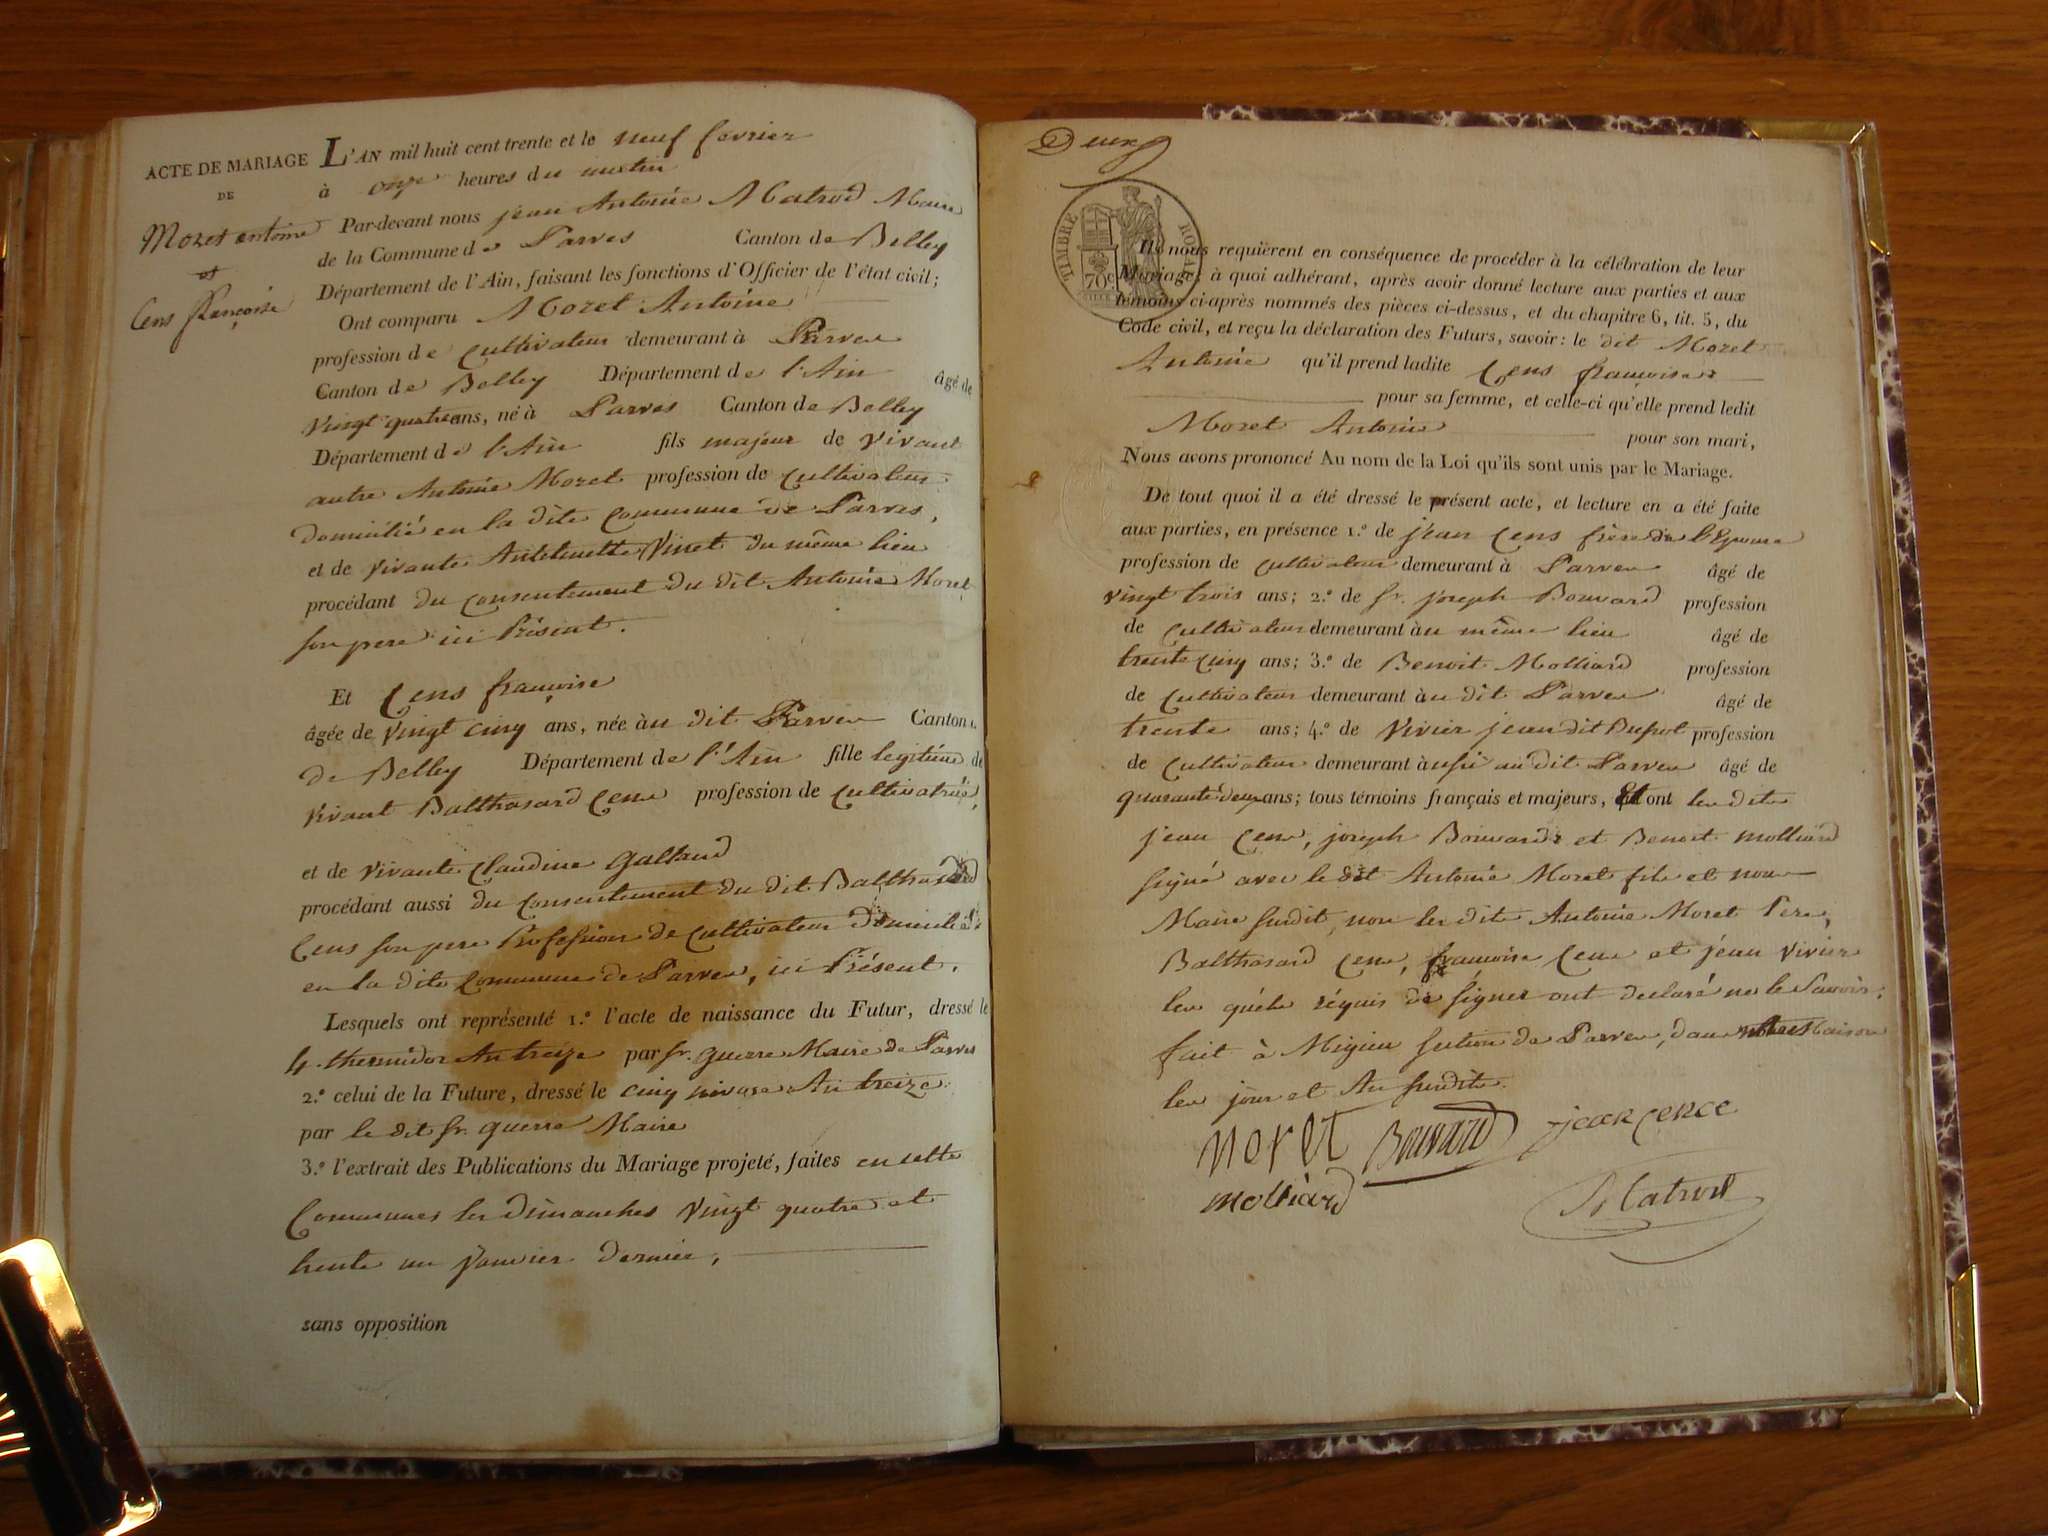 ACTE DE MARIAGE
DE
Moret antoine
et
Cens françoise
L'AN mil huit cent trente et le neuf fevrier
à onze heures du matin
Par-devant nous jean Antoine Matrod Maire
de la Commune de Parves Canton de Belley
Département de l'Ain, faisant les fonctions d'Officier de l'état civil;
Ont comparu Moret Antoine
profession de Cultivateur demeurant à Parves
Canton de Belley Département de l'Ain âgé de
Vingt quatre ans, né à Parves Canton de Belley
Département de l'Ain fils majeur de vivant
autre Antoine Moret profession de Cultivateur
domicilié en la dite Commune de Parves,
et de vivante Antoinette Vinet du même lieu
procédant du Consentement du dit Antoine Moret
son pere ici Présent.
Et Cens françoise
âgée de Vingt cinq ans, née au dit Parves Canton
de Belley Département de l'Ain fille legitime de
vivant Balthasard Cens profession de Cultivatrice,
et de vivante Claudine Galland
procédant aussi du Consentement du dit Balthasard
Cens son pere Profession de Cultivateur Domicilié
en la dite Commune de Parves, ici Présent.
Lesquels ont représenté 1.º l'acte de naissance du Futur, dressé le
4. thermidor An treize par Sr. guerre Maire de Parves
2.º celui de la Future, dressé le cinq nivose An treize
par le dit Sr. guerre Maire
3.º l'extrait des Publications du Mariage projeté, faites en cette
Communes les dimanches Vingt quatre et
trente un Janvier dernier,
sans opposition
Deux
TIMBRE ROYAL
70c
Ils nous requièrent en conséquence de procéder à la célébration de leur
Mariage; à quoi adhérant, après avoir donné lecture aux parties et aux
témoins ci-après nommés des pièces ci-dessus, et du chapitre 6, tit. 5, du
Code civil, et reçu la déclaration des Futurs, savoir: le dit Moret
Antoine qu'il prend ladite Cens françoise
pour sa femme, et celle-ci qu'elle prend ledit
Moret Antoine pour son mari,
Nous avons prononcé Au nom de la Loi qu'ils sont unis par le Mariage.
De tout quoi il a été dressé le présent acte, et lecture en a été faite
aux parties, en présence 1.º de jean Cens frère de l'Epouse
profession de cultivateur demeurant à Parves âgé de
vingt trois ans; 2.º de Sr. joseph Bouvard profession
de Cultivateur demeurant au même lieu âgé de
trente cinq ans; 3.º de Benoit Molliard profession
de Cultivateur demeurant au dit Parves âgé de
trente ans; 4.º de Vivier jean dit profession
de Cultivateur demeurant aussi au dit Parves âgé de
quarante deux ans; tous témoins français et majeurs, Et ont les dits
jean Cens, joseph Bouvard et Benoit molliard
signé avec le dit Antoine Moret fils et nous
Maire susdit, non les dits Antoine Moret Pere,
Balthasard Cens, françoise Cens et jean vivier
les quels réquis de signer ont declaré ne le Savoir;
fait à Migieu section de Parves, dans notre Maison
les jour et An susdits.
Moret Bouvard jean cence
molliard Matrod